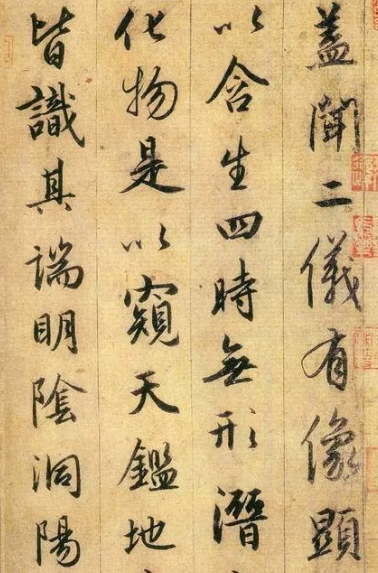 蓋聞二儀有像顯
以含生四時無形潛
化物是以窺天鑑地
皆識其端明陰洞陽